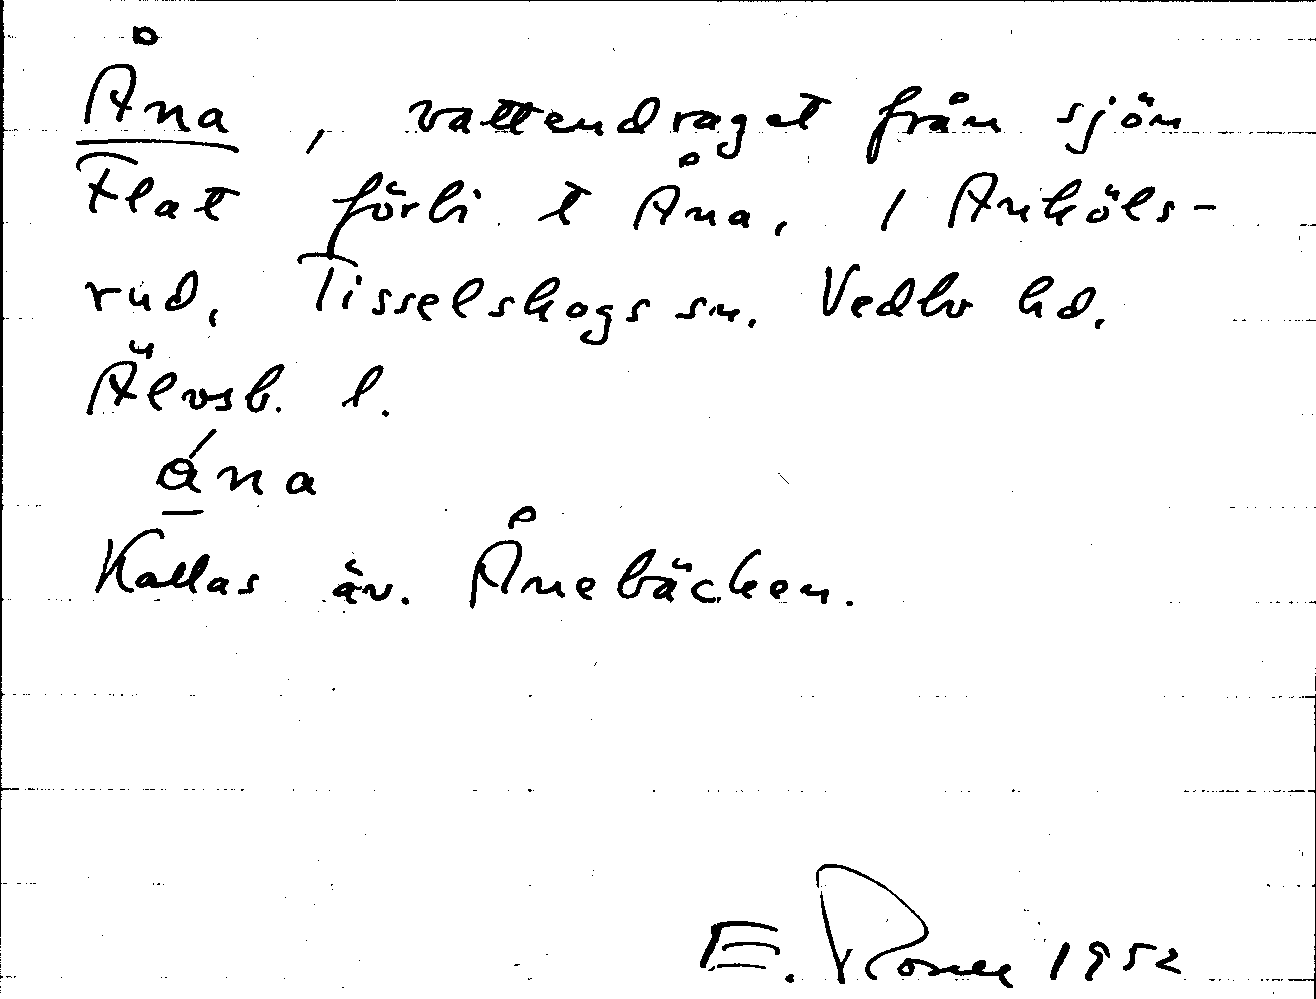 Åna, vattendraget från sjön
Flat förbi t Åna, / Anköls-
rud, Tisselskogs sn. Vedbo hd.
Älvsb. l.
åna
Kallas äv. Ånebäcken.
E. 1952